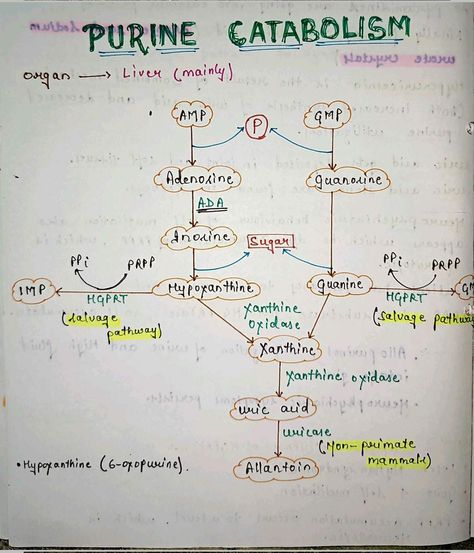 PURINE CATABOLISM
organ → Liver (mainly)
AMP P GMP
Adenosine Guanosine
ADA
Inosine Sugar
PPi PRPP PPi PRPP
IMP Hypoxanthine Guanine GM
HGPRT HGPRT
(salvage pathway) Xanthine oxidase (salvage pathway
Xanthine
Xanthine oxidase
uric acid
uricase
(Non-primate mammals)
• Hypoxanthine (6-oxopurine). Allantoin